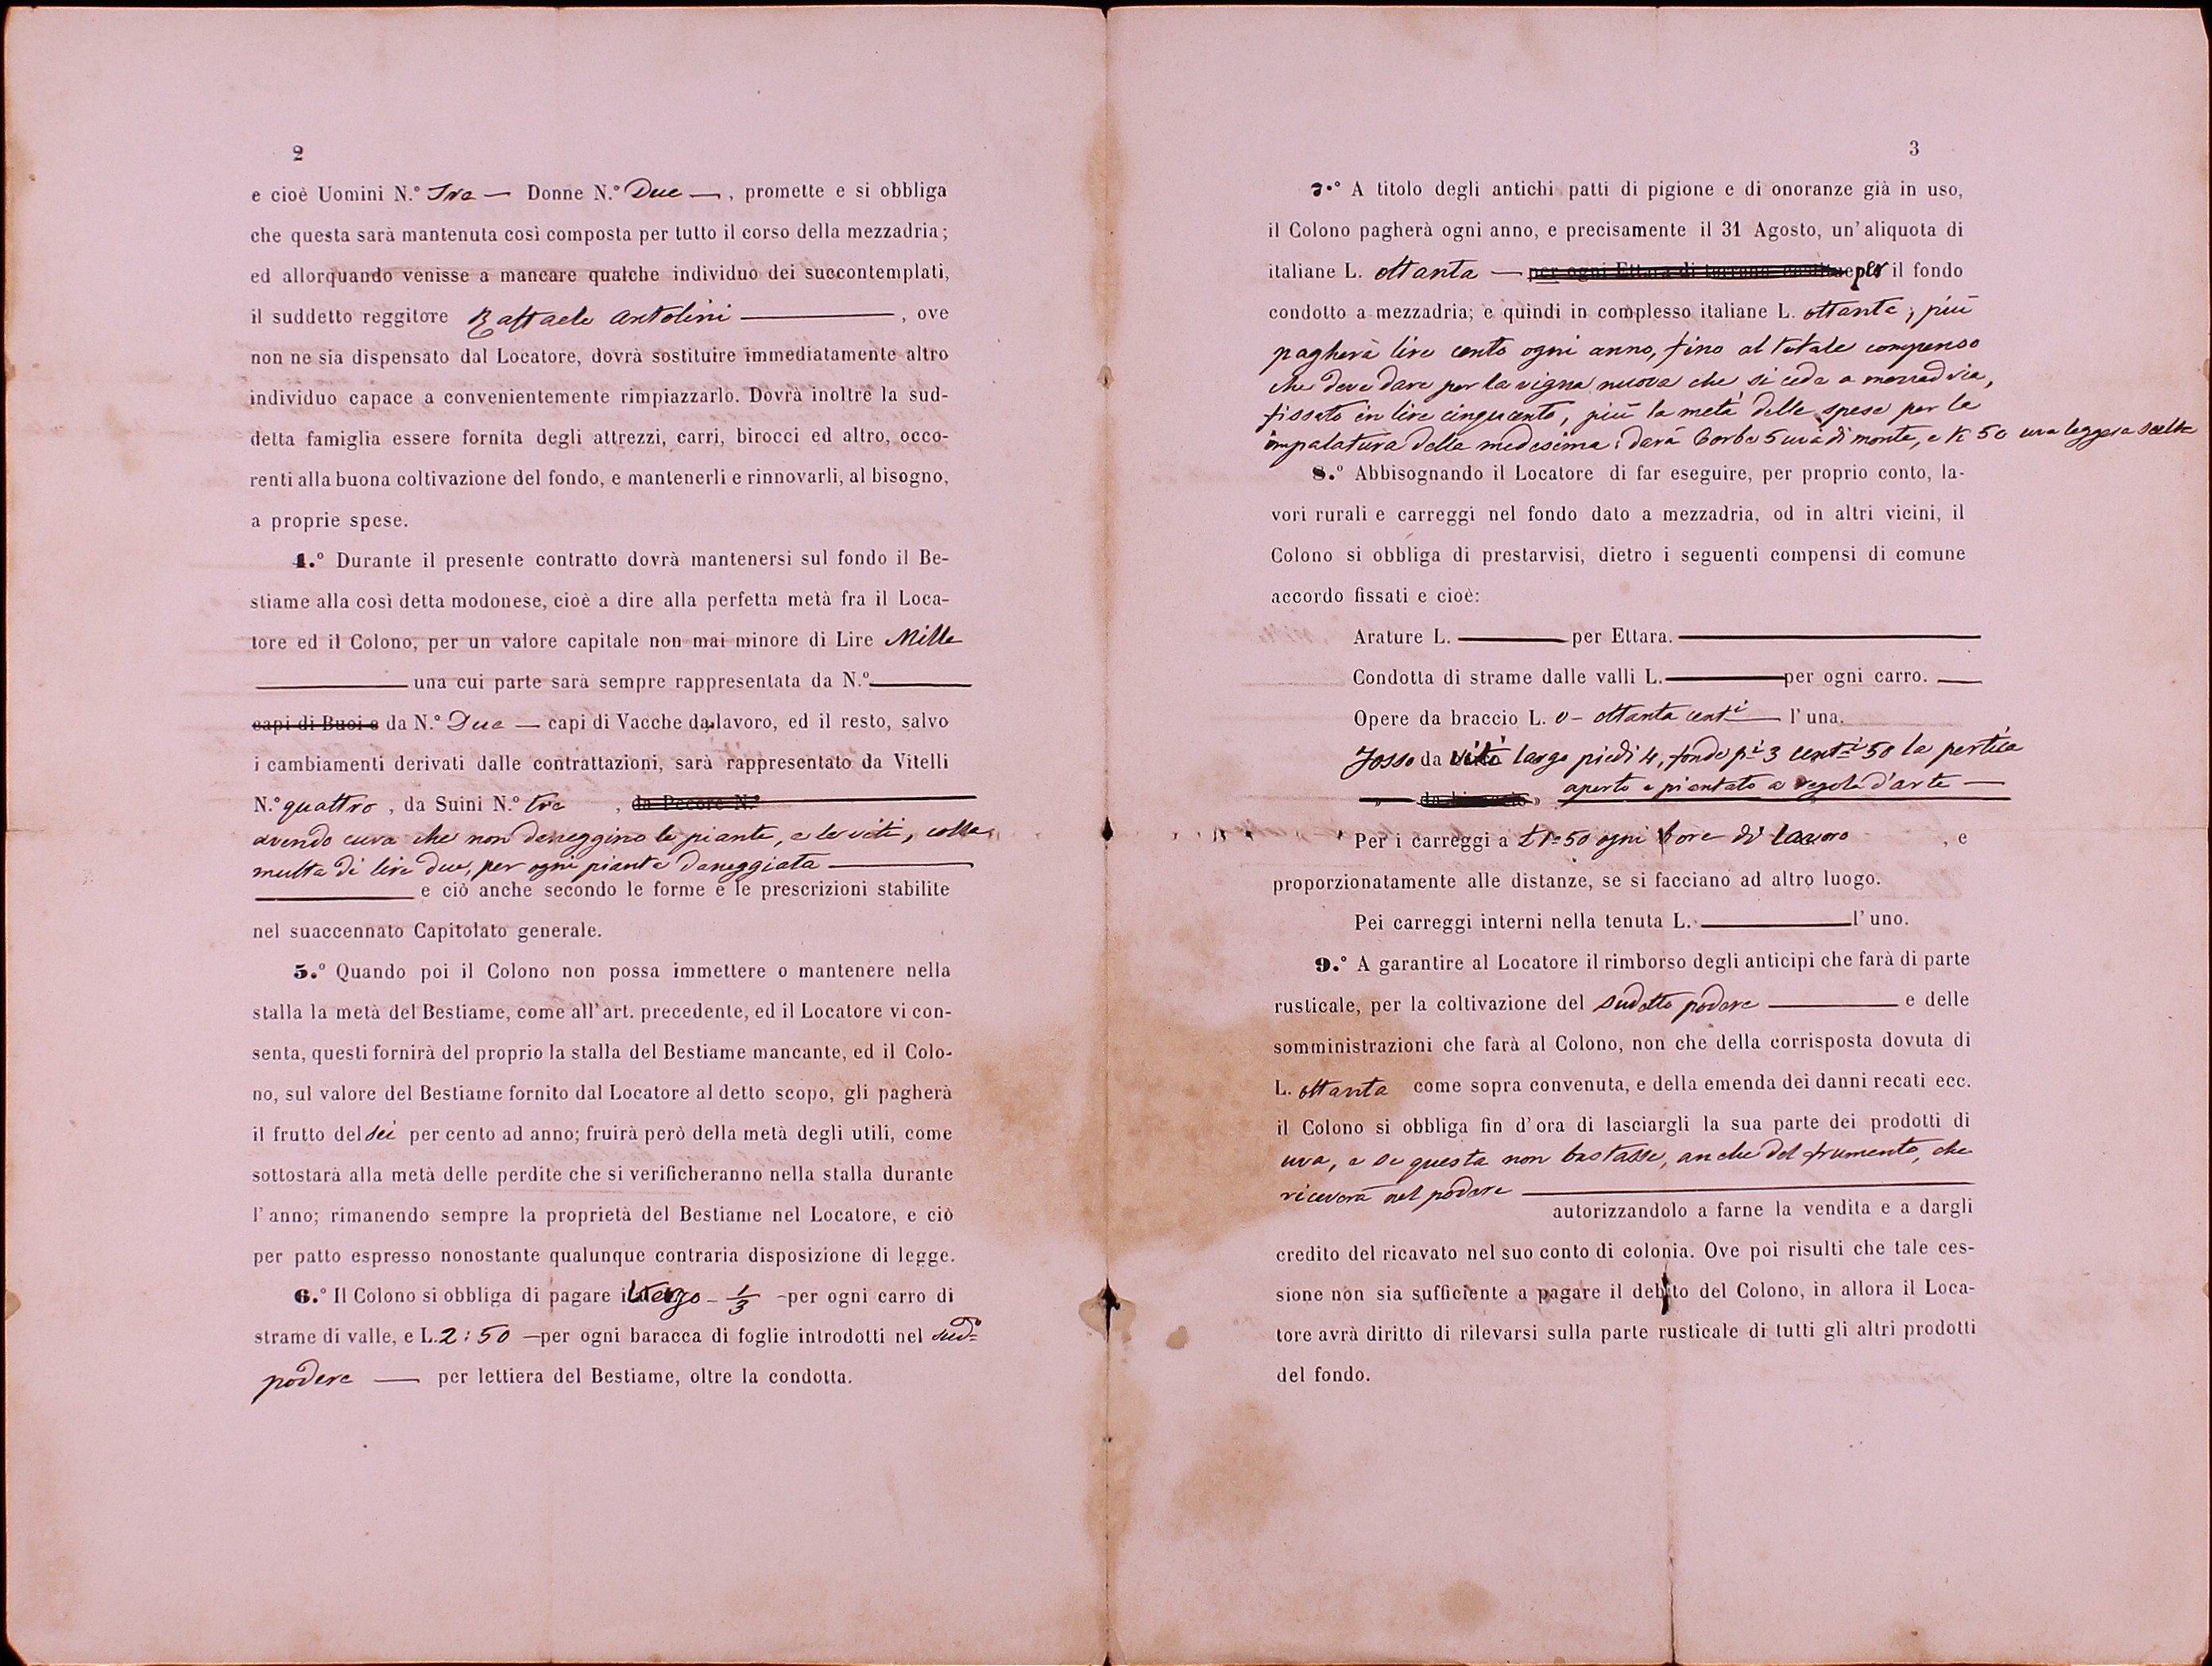 2
e cioè Uomini N.° Tre — Donne N.° Due —, promette e si obbliga
che questa sarà mantenuta così composta per tutto il corso della mezzadria;
ed allorquando venisse a mancare qualche individuo dei succontemplati,
il suddetto reggitore Raffaele Antolini ———, ove
non ne sia dispensato dal Locatore, dovrà sostituire immediatamente altro
individuo capace a convenientemente rimpiazzarlo. Dovrà inoltre la sud-
detta famiglia essere fornita degli attrezzi, carri, birocci ed altro, occo-
renti alla buona coltivazione del fondo, e mantenerli e rinnovarli, al bisogno,
a proprie spese.
4.° Durante il presente contratto dovrà mantenersi sul fondo il Be-
stiame alla così detta modonese, cioè a dire alla perfetta metà fra il Loca-
tore ed il Colono, per un valore capitale non mai minore di Lire Mille
——— una cui parte sarà sempre rappresentata da N.° ———
capi di Buoi e da N.° Due — capi di Vacche da lavoro, ed il resto, salvo
i cambiamenti derivati dalle contrattazioni, sarà rappresentato da Vitelli
N.° quattro , da Suini N.° tre , da Pecore N.° ———
avendo cura che non daneggino le piante, e le viti, colla
multa di lire due, per ogni pianta daneggiata ———
——— e ciò anche secondo le forme e le prescrizioni stabilite
nel suaccennato Capitolato generale.
5.° Quando poi il Colono non possa immettere o mantenere nella
stalla la metà del Bestiame, come all'art. precedente, ed il Locatore vi con-
senta, questi fornirà del proprio la stalla del Bestiame mancante, ed il Colo-
no, sul valore del Bestiame fornito dal Locatore al detto scopo, gli pagherà
il frutto del sei per cento ad anno; fruirà però della metà degli utili, come
sottostarà alla metà delle perdite che si verificheranno nella stalla durante
l'anno; rimanendo sempre la proprietà del Bestiame nel Locatore, e ciò
per patto espresso nonostante qualunque contraria disposizione di legge.
6.° Il Colono si obbliga di pagare il terzo - 1/3 - per ogni carro di
strame di valle, e L. 2:50 — per ogni baracca di foglie introdotti nel sud°
podere — per lettiera del Bestiame, oltre la condotta.
3
7.° A titolo degli antichi patti di pigione e di onoranze già in uso,
il Colono pagherà ogni anno, e precisamente il 31 Agosto, un'aliquota di
italiane L. ottanta — per ogni Ettara di terreno per il fondo
condotto a mezzadria; e quindi in complesso italiane L. ottanta; più
pagherà lire cento ogni anno, fino al totale compenso
che deve dare per la vigna nuova che si cede a mezzadria,
fissato in lire cinquecento, più la metà delle spese per la
impalatura della medesima: darà Corbe 5 uva di monte, e K 50 uva leggera scelta
8.° Abbisognando il Locatore di far eseguire, per proprio conto, la-
vori rurali e carreggi nel fondo dato a mezzadria, od in altri vicini, il
Colono si obbliga di prestarvisi, dietro i seguenti compensi di comune
accordo fissati e cioè:
Arature L. ——— per Ettara. ———
Condotta di strame dalle valli L. ——— per ogni carro. —
Opere da braccio L. 0 - ottanta centi — l'una.
Fosso da viti largo piedi 4, fondo pi 3 centi 50 la pertica
» — » aperto e piantato a regola d'arte —
Per i carreggi a £ 1-50 ogni ore di lavoro , e
proporzionatamente alle distanze, se si facciano ad altro luogo.
Pei carreggi interni nella tenuta L. ——— l'uno.
9.° A garantire al Locatore il rimborso degli anticipi che farà di parte
rusticale, per la coltivazione del sudetto podere ——— e delle
somministrazioni che farà al Colono, non che della corrisposta dovuta di
L. ottanta come sopra convenuta, e della emenda dei danni recati ecc.
il Colono si obbliga fin d'ora di lasciargli la sua parte dei prodotti di
uva, e se questa non bastasse, anche del frumento, che
riceverà nel podere ———
autorizzandolo a farne la vendita e a dargli
credito del ricavato nel suo conto di colonia. Ove poi risulti che tale ces-
sione non sia sufficiente a pagare il debito del Colono, in allora il Loca-
tore avrà diritto di rilevarsi sulla parte rusticale di tutti gli altri prodotti
del fondo.